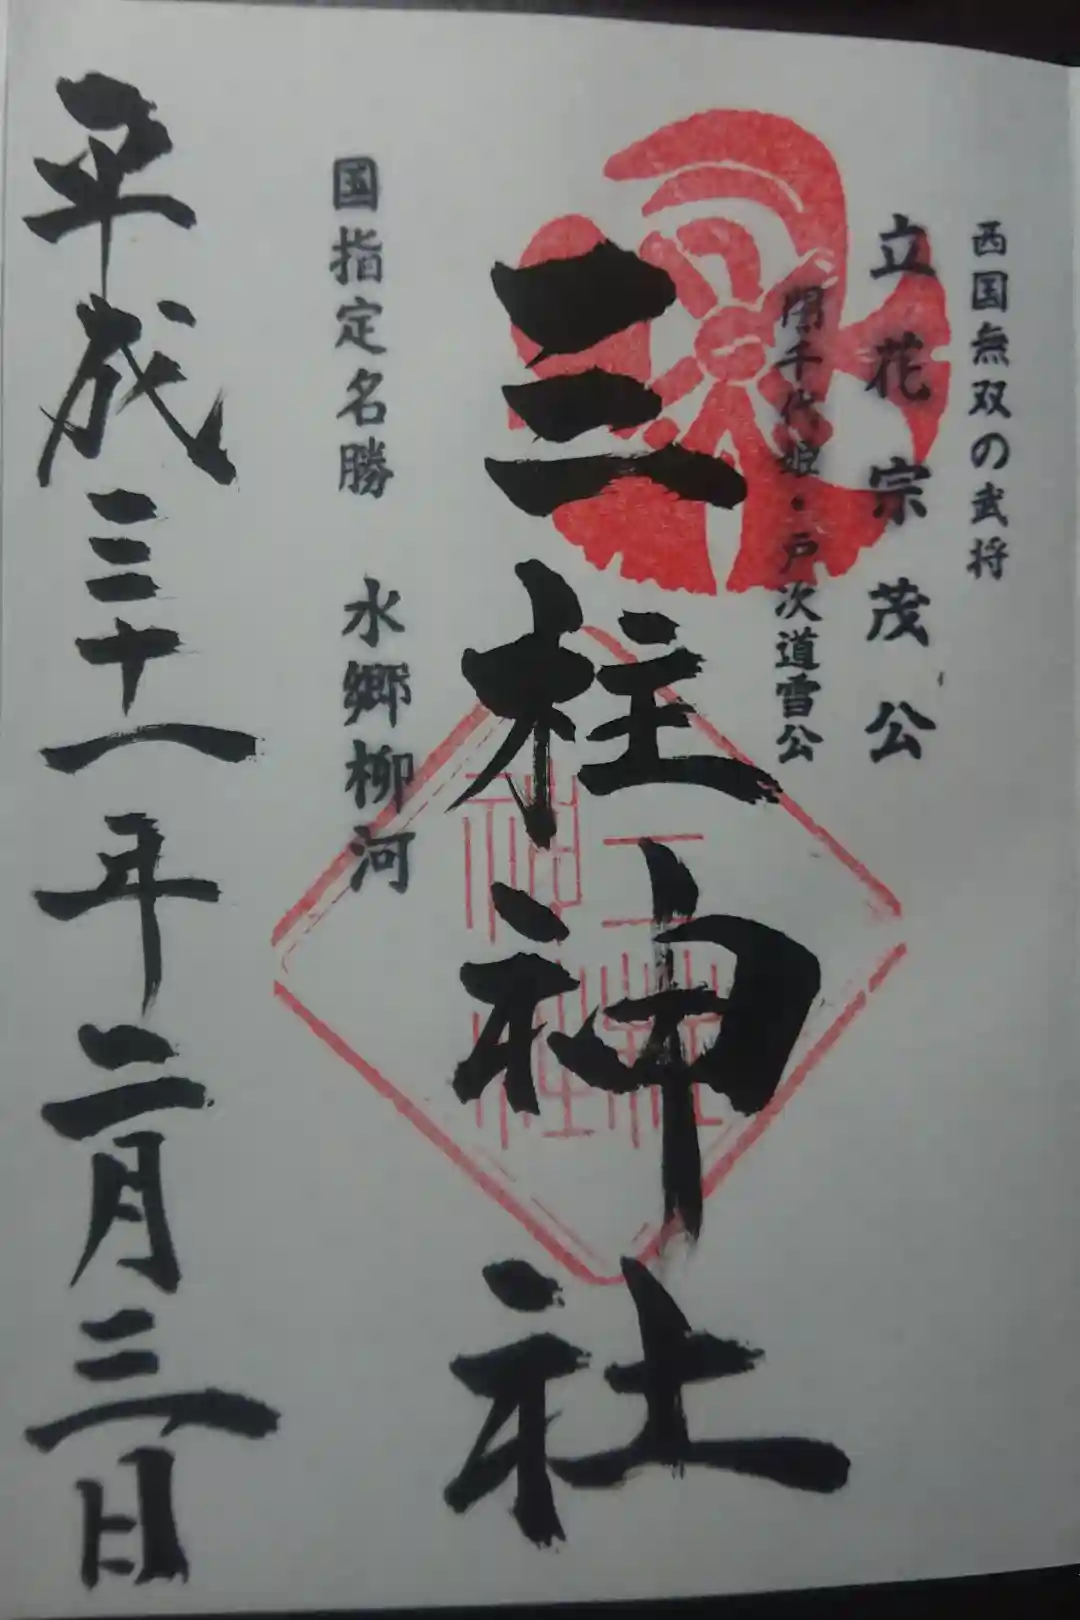 西国無双の武将
立花宗茂公
誾千代姫・戸次道雪公
三柱神社
国指定名勝 水郷柳河
平成三十一年二月三日
三柱
神社